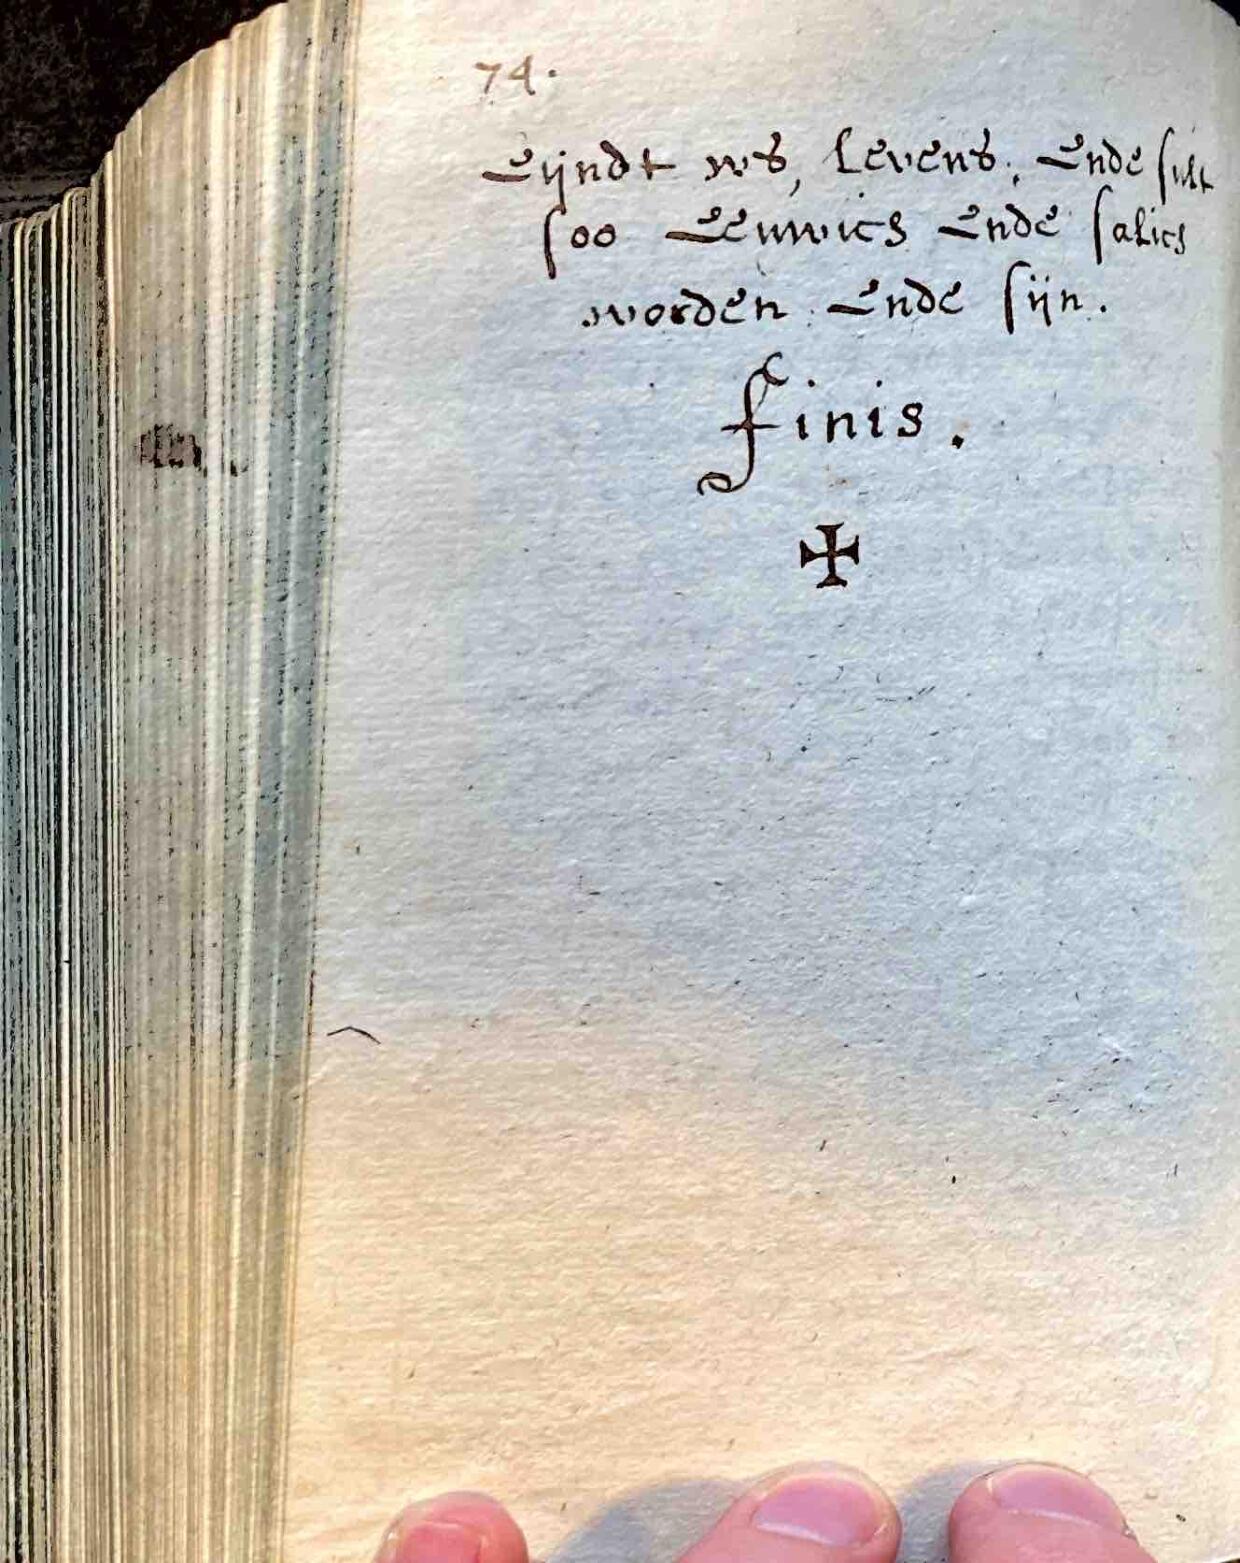 74.
Eijndt ws, levens, Ende sult
soo Eeuwich Ende salich
worden Ende sijn.
finis.